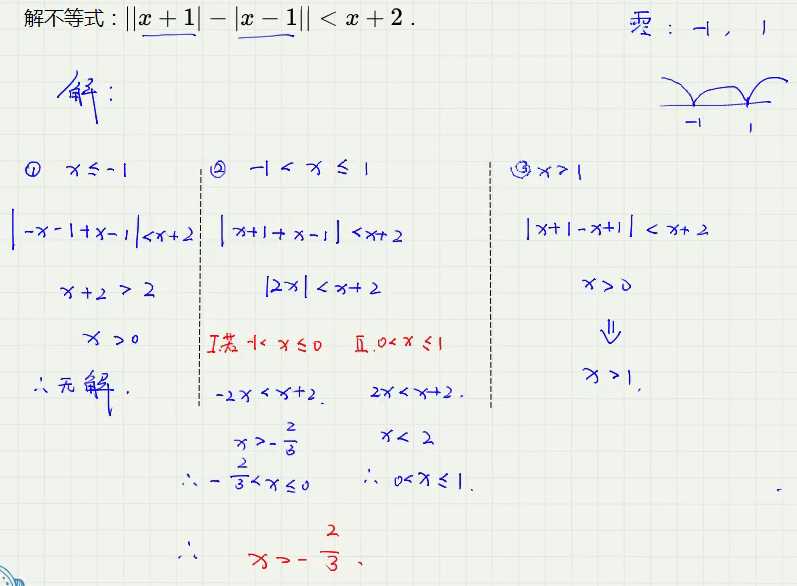 解不等式：||x+1|-|x-1||<x+2.
零：-1，1
解：
-1 1
① x≤-1
|-x-1+x-1|<x+2
x+2>2
x>0
∴无解.
② -1<x≤1
|x+1+x-1|<x+2
|2x|<x+2
I.若-1<x≤0
-2x<x+2.
x>-2/3
∴-2/3<x≤0
II.0<x≤1
2x<x+2.
x<2
∴0<x≤1.
③ x>1
|x+1-x+1|<x+2
x>0
⇓
x>1.
∴ x>-2/3.